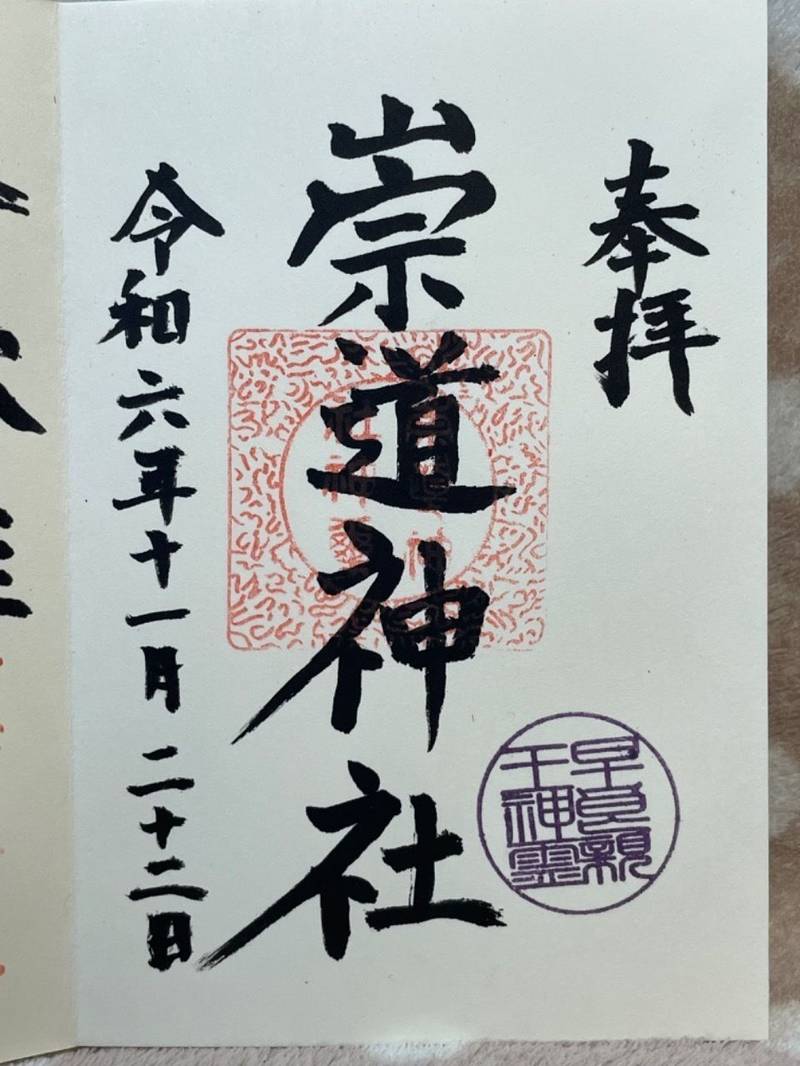 奉拝
崇道神社
早良親
王神霊
令和六年十一月二十二日